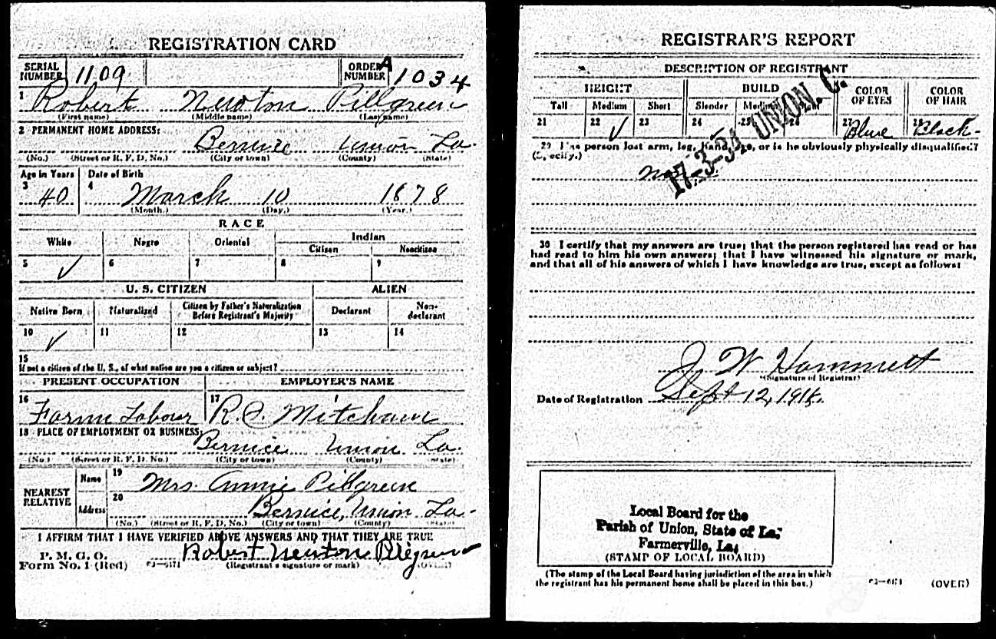 REGISTRATION CARD
SERIAL NUMBER 1109 ORDER NUMBER A 1034
1 Robert Newton Pillgreen
(First name) (Middle name) (Last name)
2 PERMANENT HOME ADDRESS:
Bernice Union La
(No.) (Street or R. F. D. No.) (City or town) (County) (State)
Age in Years Date of Birth
3 40 4 March 10 1878
(Month.) (Day.) (Year.)
RACE
White Negro Oriental Indian
Citizen Noncitizen
5 ✓ 6 7 8 9
U. S. CITIZEN ALIEN
Native Born Naturalized Citizen by Father's Naturalization Before Registrant's Majority Declarant Non-declarant
10 ✓ 11 12 13 14
15
If not a citizen of the U. S., of what nation are you a citizen or subject?
PRESENT OCCUPATION EMPLOYER'S NAME
16 Farm Labour 17 R. C. Mitcham
18 PLACE OF EMPLOYMENT OR BUSINESS:
Bernice Union La.
(No.) (Street or R. F. D. No.) (City or town) (County) (State)
NEAREST RELATIVE Name 19 Mrs. Annie Pillgreen
Address 20 Bernice, Union, La-
(No.) (Street or R. F. D. No.) (City or town) (County) (State)
I AFFIRM THAT I HAVE VERIFIED ABOVE ANSWERS AND THAT THEY ARE TRUE
P. M. G. O.
Form No. 1 (Red) 03-6171 Robert Newton Pillgreen
(Registrant's signature or mark) (OVER)
REGISTRAR'S REPORT
DESCRIPTION OF REGISTRANT
HEIGHT BUILD COLOR OF EYES COLOR OF HAIR
Tall Medium Short Slender Medium
21 22 ✓ 23 24 25 26 27 Blue 28 Black-
17-3-34 UNION. C.
29 Has person lost arm, leg, hand, eye, or is he obviously physically disqualified?
(Specify.)
no
30 I certify that my answers are true; that the person registered has read or has
had read to him his own answers; that I have witnessed his signature or mark,
and that all of his answers of which I have knowledge are true, except as follows:
J W Hammett
(Signature of Registrar)
Date of Registration Sept 12, 1918.
Local Board for the
Parish of Union, State of La;
Farmerville, La;
(STAMP OF LOCAL BOARD)
(The stamp of the Local Board having jurisdiction of the area in which
the registrant has his permanent home shall be placed in this box.)
03-6171 (OVER)